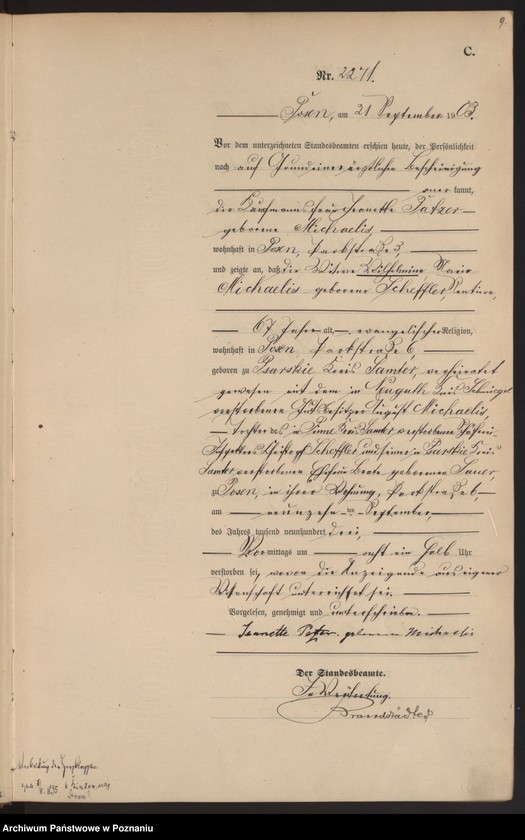 9.
C.
Nr. 2271.
Posen, am 21 September 1903.
Vor dem unterzeichneten Standesbeamten erschien heute, der Persönlichkeit
nach auf Grund einer ärztlichen Bescheinigung
anerkannt,
die Kaufmannsfrau Jeanette Patzer
geborene Michaelis,
wohnhaft in Posen, Parkstraße 3,
und zeigte an, daß die Witwe Wilhelmine Marie
Michaelis geborene Scheffler, Rentiere,
67 Jahre alt, evangelischer Religion,
wohnhaft in Posen Parkstraße 6,
geboren zu Psarskie Kreis Samter, verheiratet
gewesen mit dem in Kreis Schmiegel
verstorbenen Gutsbesitzer August Michaelis,
Tochter des in Pinne Kreis Samter verstorbenen
Scheffler und seiner in Psarskie Kreis
Samter verstorbenen Ehefrau Beate geborenen
zu Posen, in ihrer Wohnung, Parkstraße 6
am neunzehnten September,
des Jahres tausend neunhundert drei,
Vormittags um acht ein halb Uhr
verstorben sei, wovon die Anzeigende aus eigener
Wissenschaft unterrichtet sei.
Vorgelesen, genehmigt und unterschrieben.
Jeanette Patzer geborene Michaelis
Der Standesbeamte.
In Vertretung.
Brandstädter
Archiwum Państwowe w Poznaniu